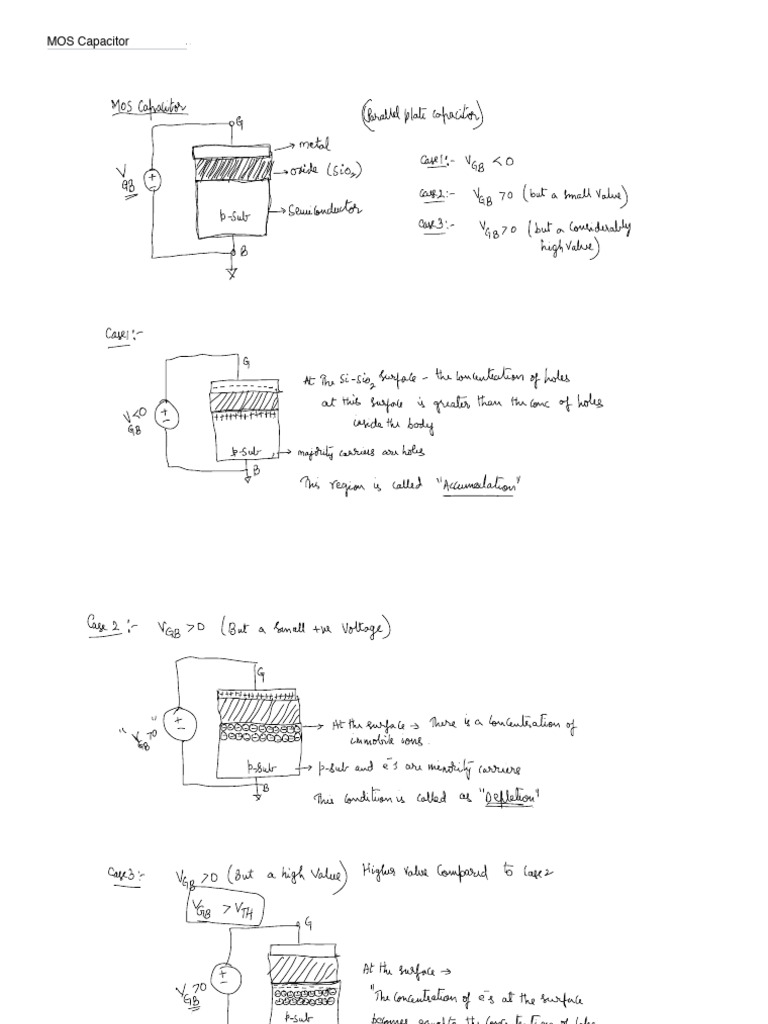 MOS Capacitor
MOS Capacitor
(Parallel plate capacitor)
G
metal
oxide (SiO₂)
p-sub
Semiconductor
B
V_GB
+
−
Case1:- V_GB < 0
Case2:- V_GB > 0 (but a small value)
Case3:- V_GB > 0 (but a considerably
high value)
Case1:-
G
V_GB < 0
+
−
p-sub
B
At the Si-SiO₂ surface - the concentration of holes
at this surface is greater than the conc of holes
inside the body
majority carriers are holes
This region is called "Accumulation"
Case 2:- V_GB > 0 (But a small +ve Voltage)
G
"V_GB > 0"
+
−
p-sub
B
At the surface → There is a concentration of
immobile ions.
p-sub and e⁻s are minority carriers
This condition is called as "Depletion"
Case3:- V_GB > 0 (But a high Value) Higher value compared to case 2
V_GB > V_TH
G
V_GB > 0
+
−
p-sub
At the surface →
"The concentration of e⁻s at the surface
becomes equal to the conc
of holes